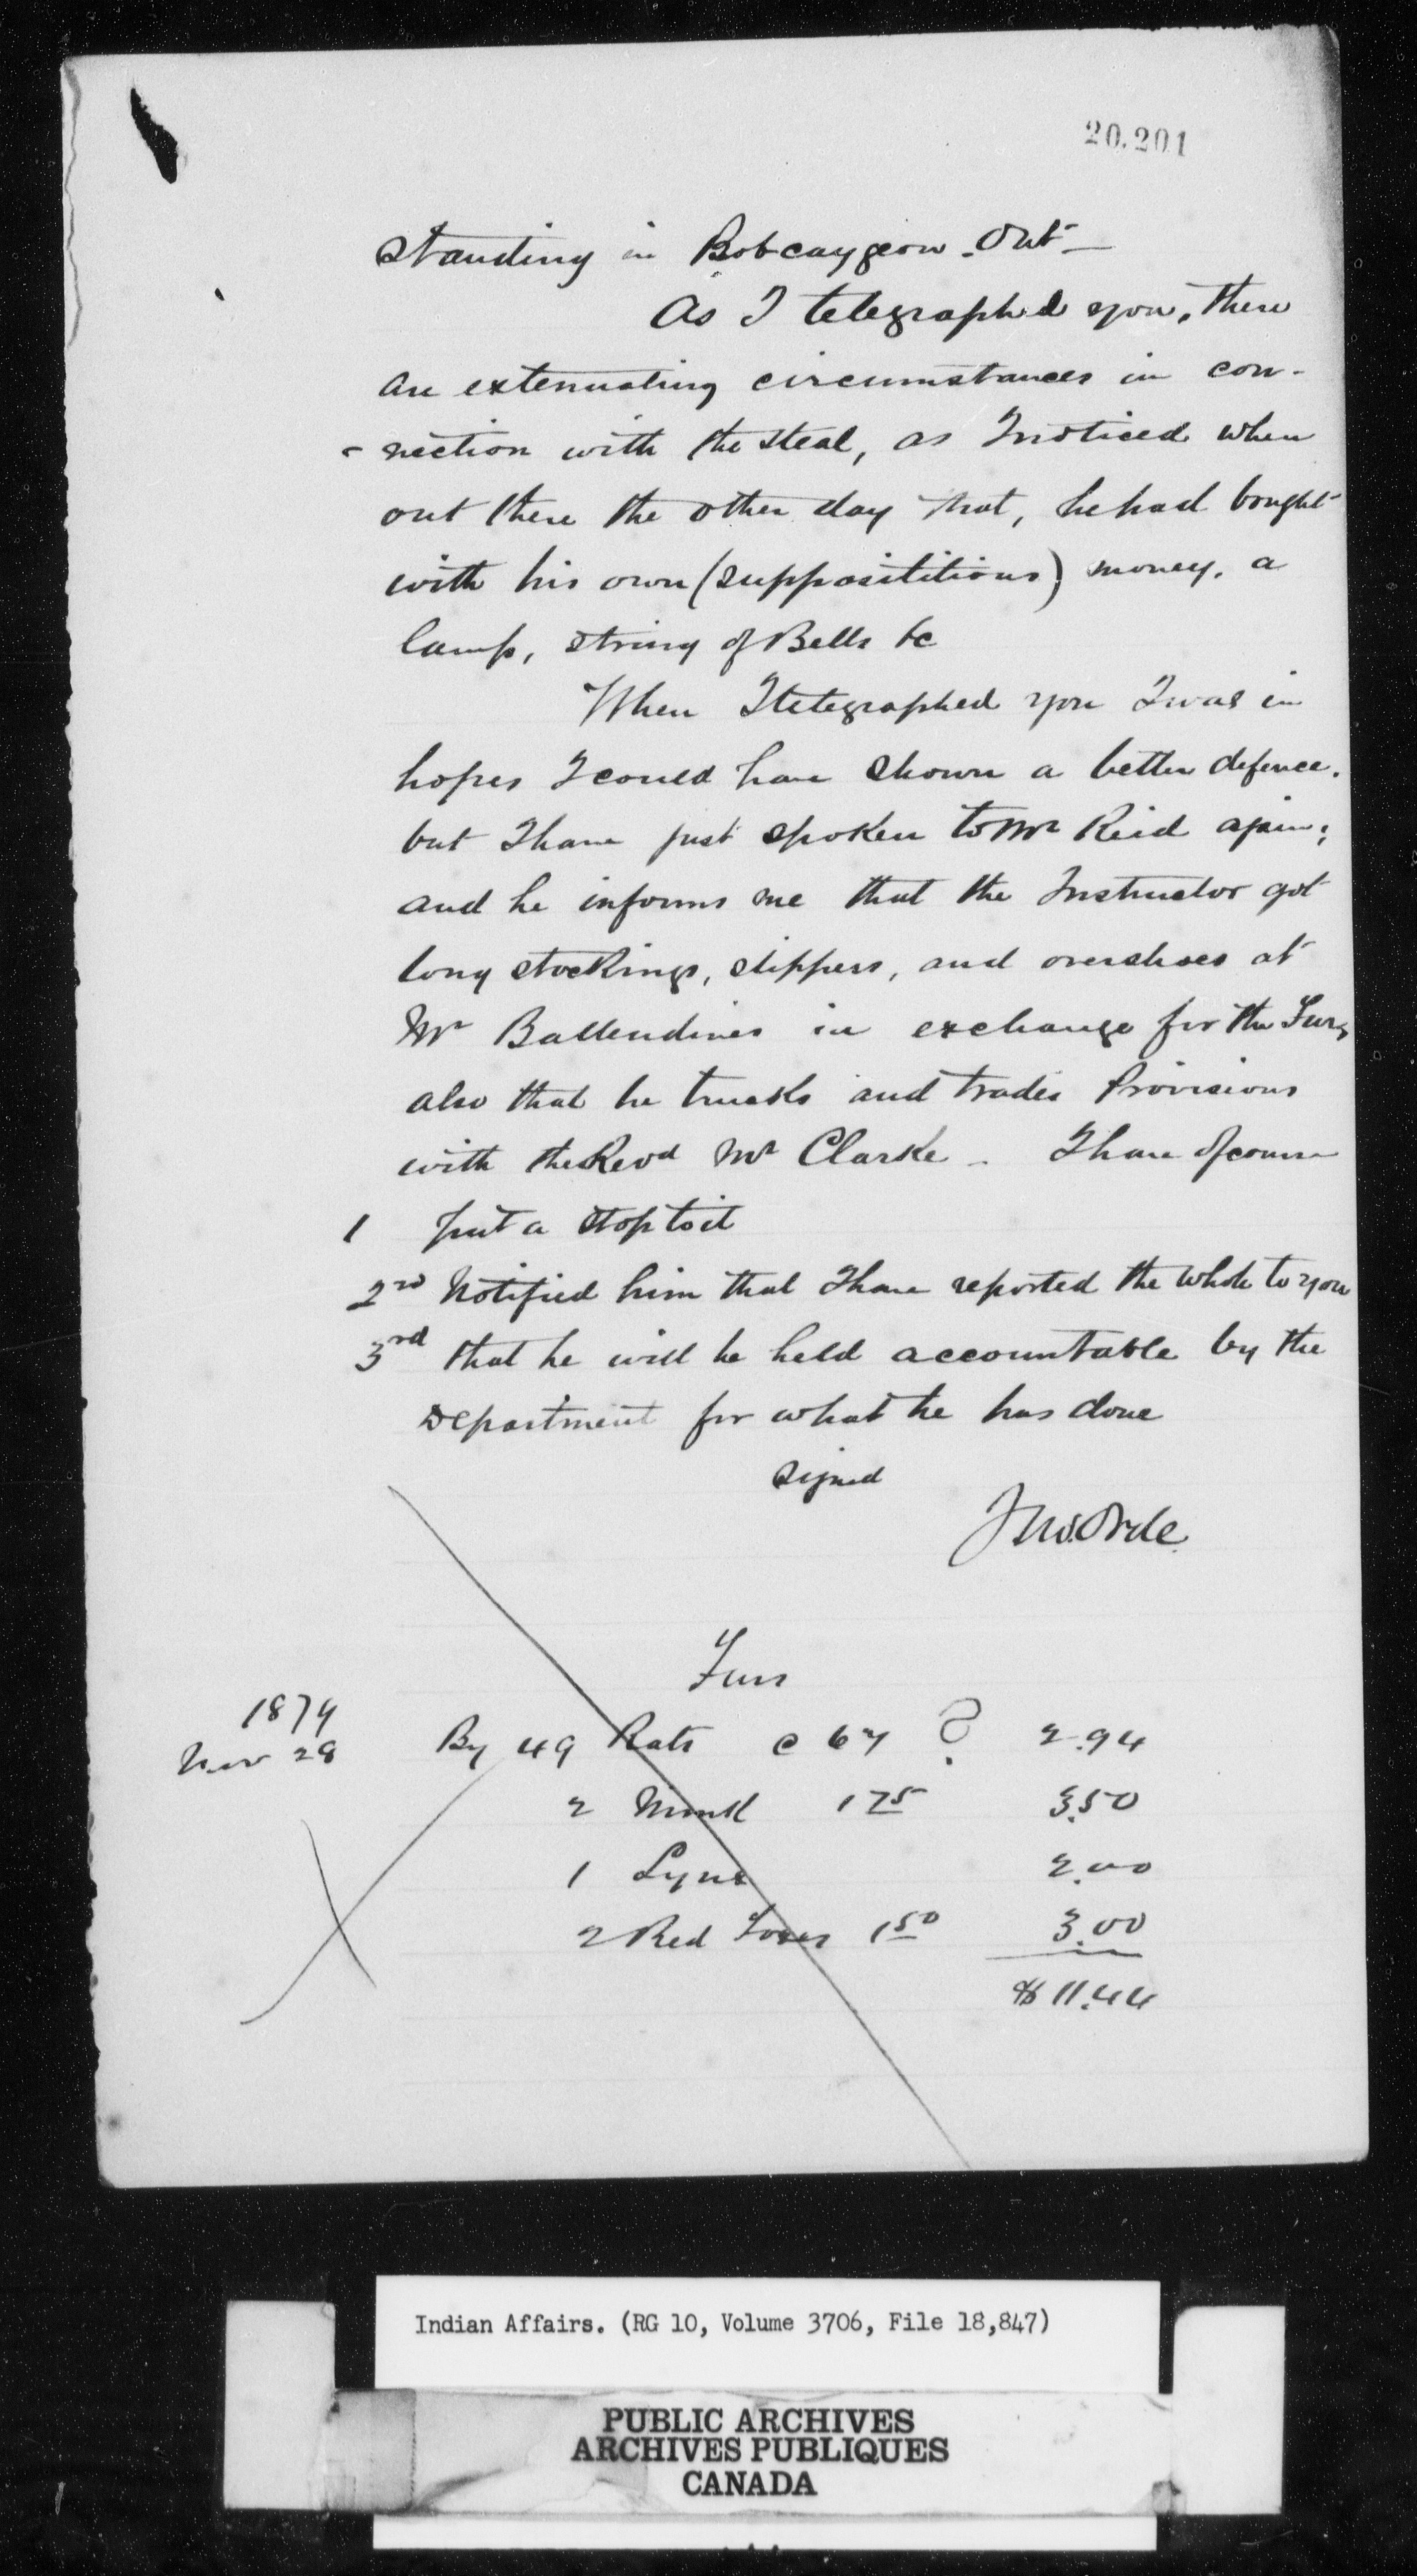 20.201
standing in Bobcaygeon. Ont-
As I telegraphed you, there
are extenuating circumstances in con-
- nection with the steal, as I noticed when
out there the other day that, he had bought
with his own (supposititious) money, a
lamp, string of Bells &c
When I telegraphed you I was in
hopes I could have shown a better defence.
but I have just spoken to Mr Reid again;
and he informs me that the Instructor got
long stockings, slippers, and overshoes at
Mr Ballendines in exchange for the Furs
also that he trucks and trades Provisions
with the Revd Mr Clarke - I have of course
1 put a stop to it
2nd Notified him that I have reported the whole to you
3rd that he will be held accountable by the
Department for what he has done
signed
Furs
1879
Nov 28 By 49 Rats @ 6 ? 2.94
2 Mink 1 75 3.50
1 Lynx 2.00
2 Red Foxes 1 50 3.00
$ 11.44
Indian Affairs. (RG 10, Volume 3706, File 18,847)
PUBLIC ARCHIVES
ARCHIVES PUBLIQUES
CANADA